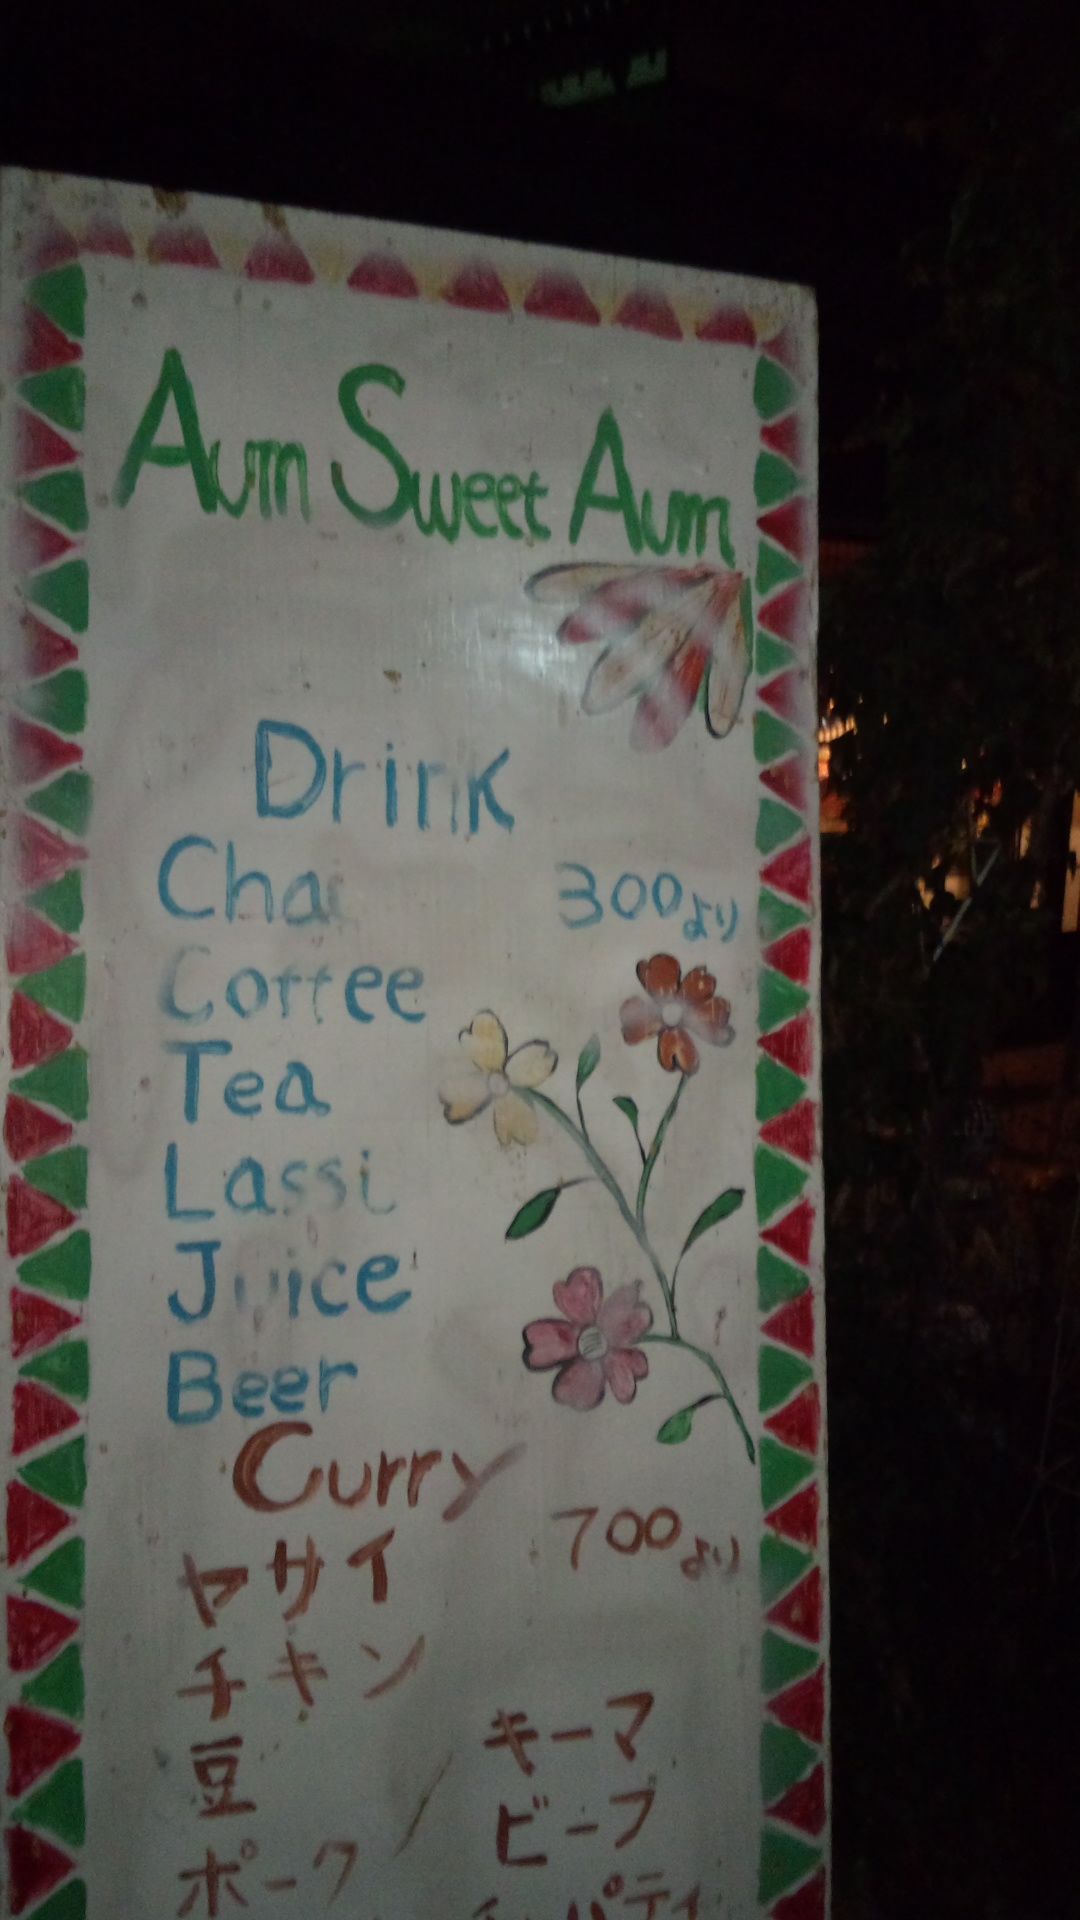 Aum Sweet Aum
Drink
Chai 300より
Coffee
Tea
Lassi
Juice
Beer
Curry
700より
ヤサイ
チキン
豆
キーマ
ポーク
ビーフ